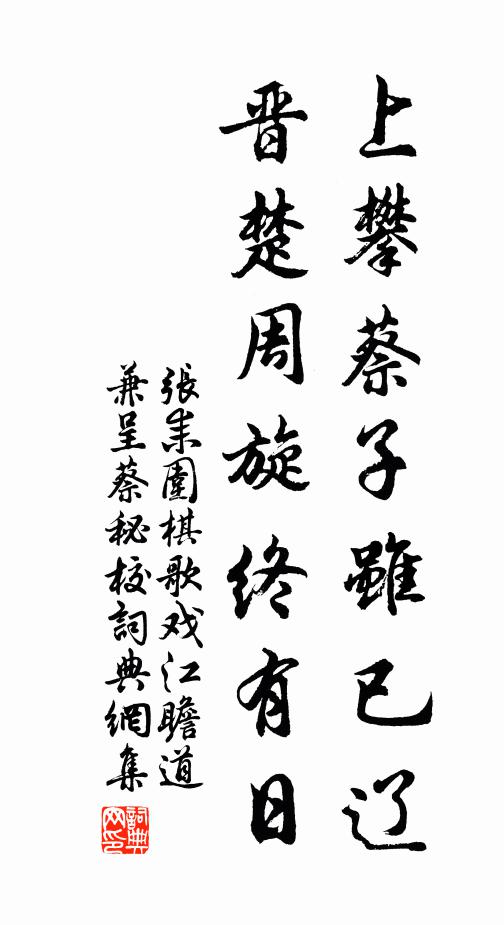 上攀蔡子雖已辽
晋楚周旋終有日
張耒圍棋歌戏江瞻道
兼呈蔡秘校詞典網集
詞典网印